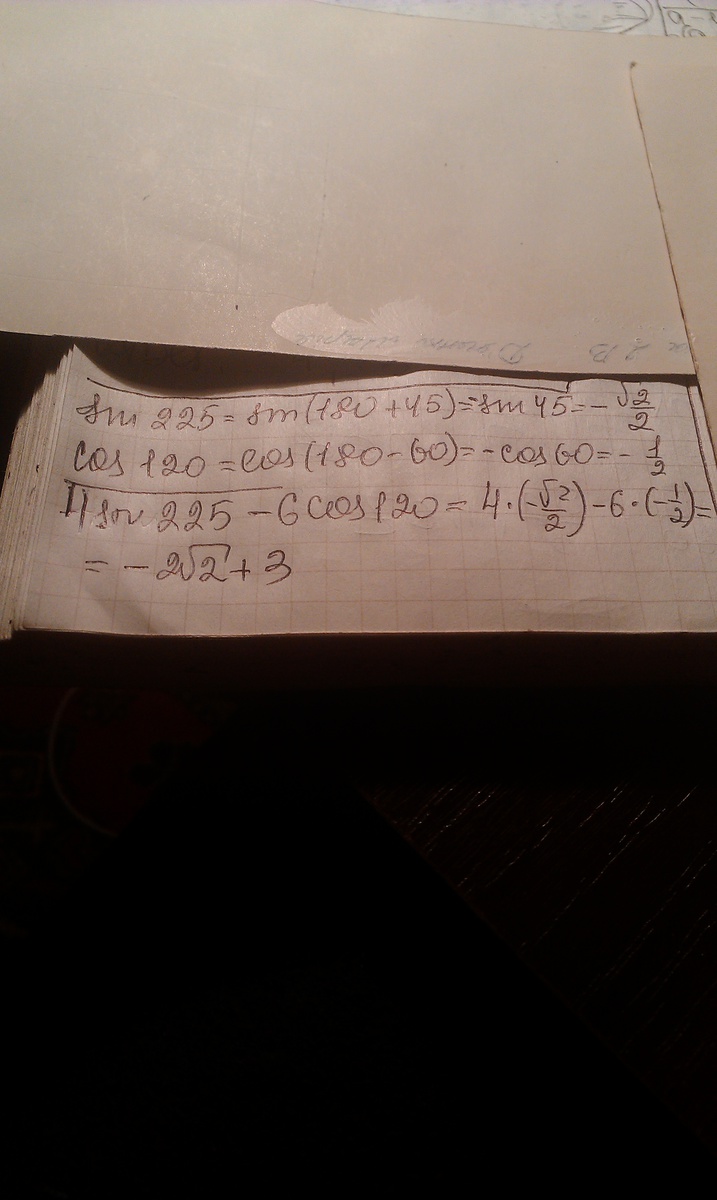 sin 225 = sin(180 + 45) = -sin 45 = - √2/2
cos 120 = cos(180 - 60) = - cos 60 = - 1/2
4 sin 225 - 6 cos 120 = 4 · (-√2/2) - 6 · (-1/2) =
= - 2√2 + 3